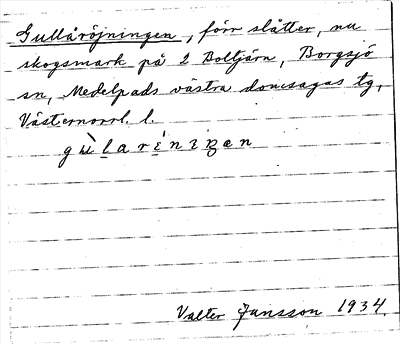 Gullåröjningen, förr slåtter, nu
skogsmark på 2 Boltjärn, Borgsjö
sn, Medelpads västra domsagas tg,
Västernorrl. l.
Valter Jansson 1934.